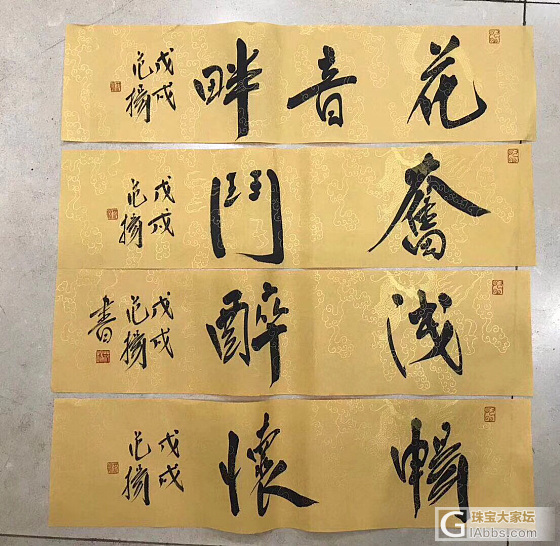 花音畔
戊戌
范扬
奮鬥
戊戌
范扬
浅醉
戊戌
范扬
書
暢懷
戊戌
范扬
珠宝大家坛
GIAbbs.com